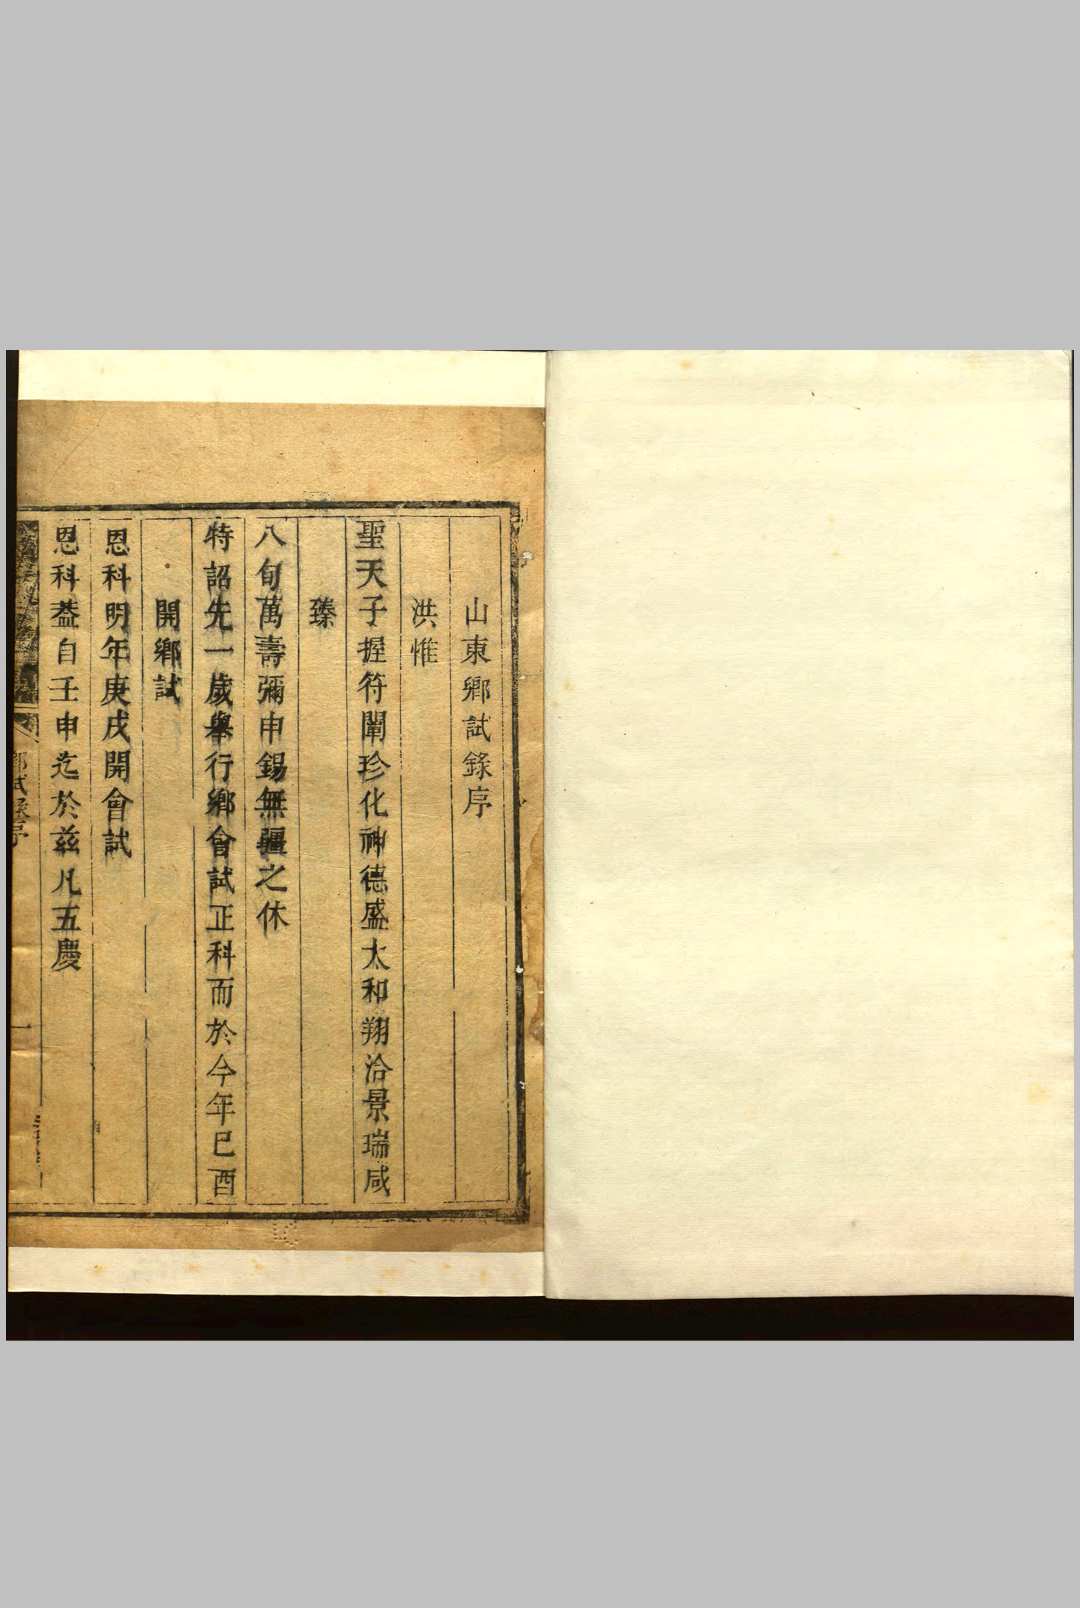 山東鄉試錄序
洪惟
聖天子握符闡珍化神德盛太和翔洽景瑞咸
臻
八旬萬壽彌申錫無疆之休
特詔先一歲舉行鄉會試正科而於今年巳酉
開鄉試
恩科明年庚戌開會試
恩科葢自壬申迄於兹凡五慶
鄉試錄序
一